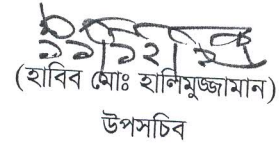 (হাবিব মোঃ হালিমুজ্জামান)
উপসচিব